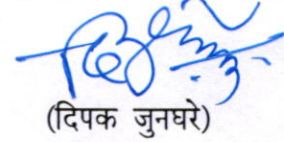 (दिपक जुनघरे)